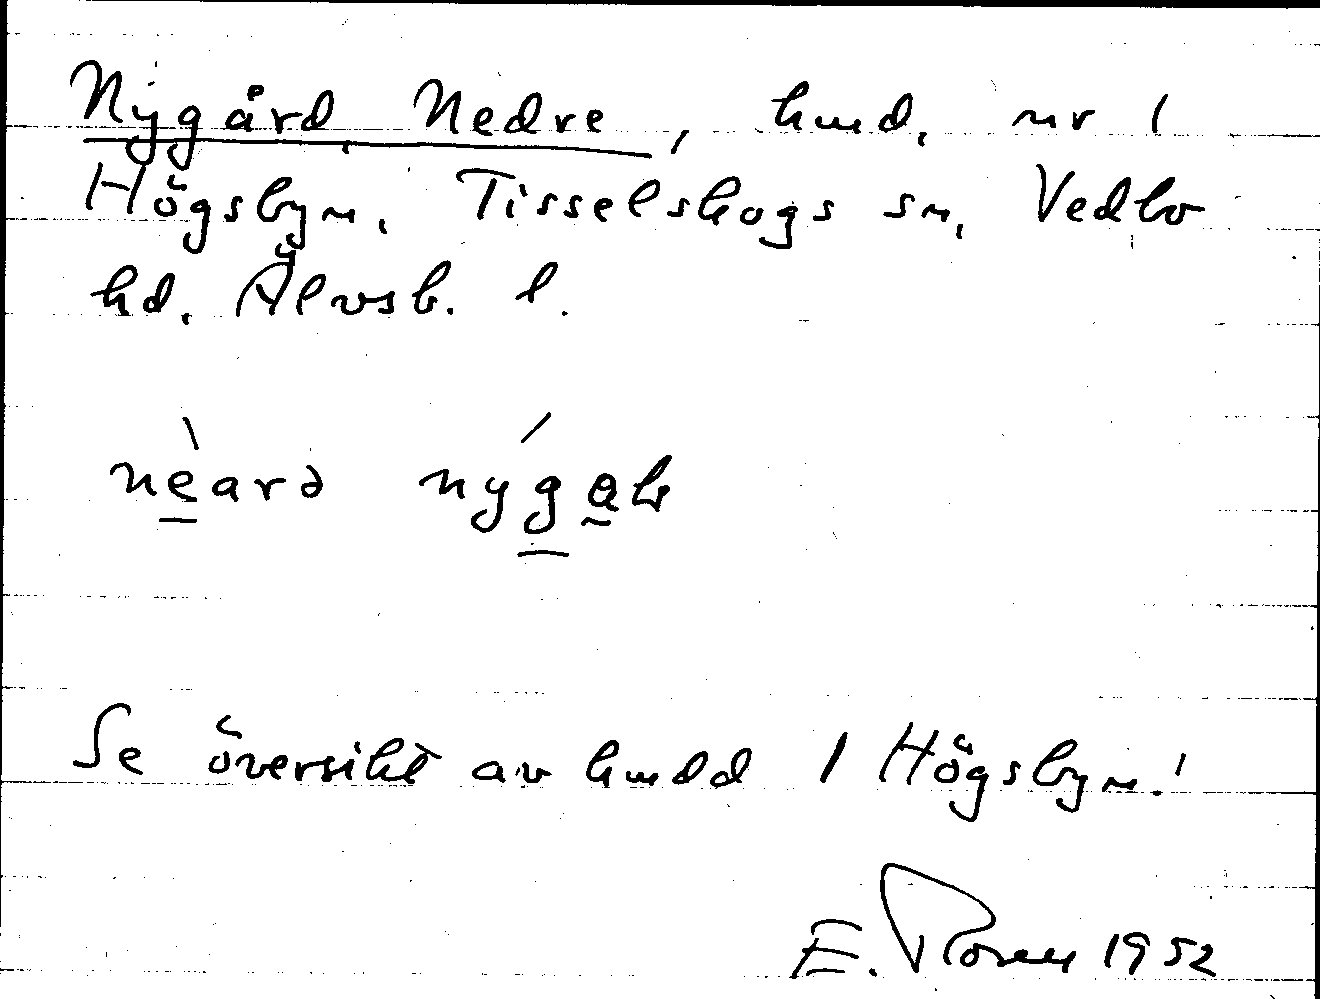 Nygård, Nedre, hmd, nr 1
Högsbyn, Tisselskogs sn, Vedbo
hd, Älvsb. l.
nèarə nýgaḷ
Se översikt av hmdd 1 Högsbyn!
E. 1952